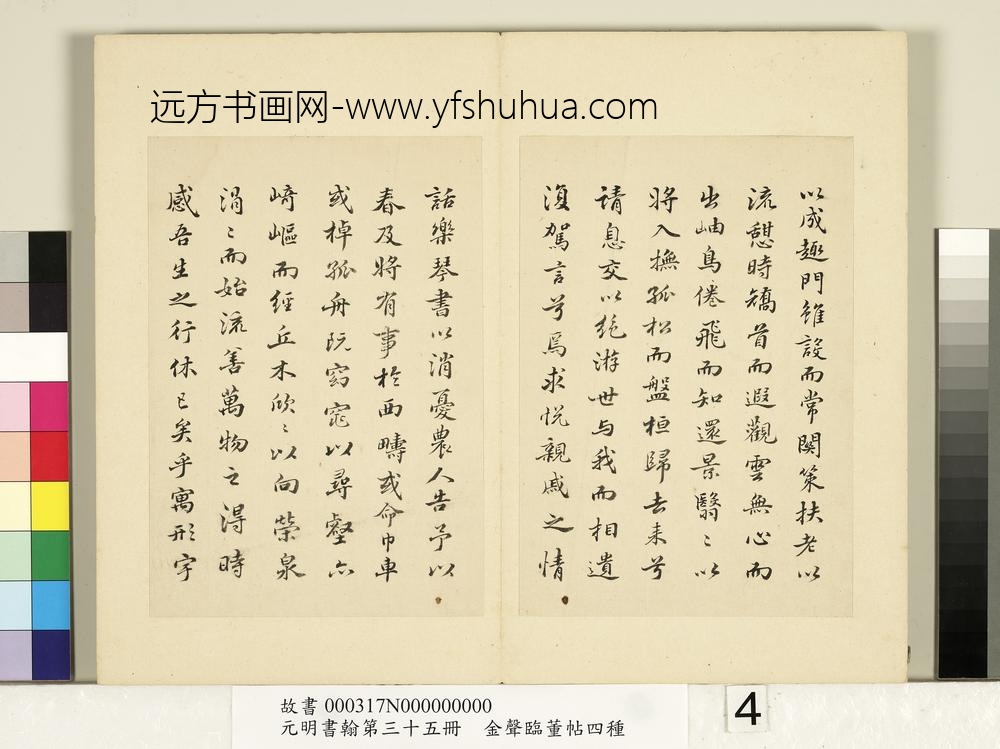 远方书画网-www.yfshuhua.com
以成趣門雖設而常関策扶老以
流憩時矯首而遐觀雲無心而
出岫鳥倦飛而知還景翳〻以
将入撫孤松而盤桓歸去来兮
請息交以絶游世与我而相遺
復駕言兮焉求悦親戚之情
話樂琴書以消憂農人告予以
春及将有事於西疇或命巾車
或棹孤舟既窈窕以尋壑亦
崎嶇而經丘木欣〻以向榮泉
涓〻而始流善萬物之得時
感吾生之行休已矣乎寓形宇
故書 000317N000000000
元明書翰第三十五冊 金聲臨董帖四種
4